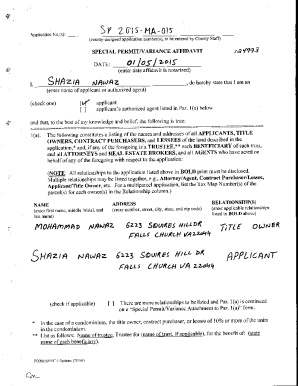 Application No.(s): SP 2015-MA-015
(county-assigned application number(s), to be entered by County Staff)
SPECIAL PERMIT/VARIANCE AFFIDAVIT
DATE: 01/05/2015
(enter date affidavit is notarized)
I, SHAZIA NAWAZ, do hereby state that I am an
(enter name of applicant or authorized agent)
(check one) [✓] applicant
[ ] applicant's authorized agent listed in Par. 1(a) below
and that, to the best of my knowledge and belief, the following is true:
1(a). The following constitutes a listing of the names and addresses of all APPLICANTS, TITLE
OWNERS, CONTRACT PURCHASERS, and LESSEES of the land described in the
application,* and, if any of the foregoing is a TRUSTEE,** each BENEFICIARY of such trust,
and all ATTORNEYS and REAL ESTATE BROKERS, and all AGENTS who have acted on
behalf of any of the foregoing with respect to the application:
(NOTE: All relationships to the application listed above in BOLD print must be disclosed.
Multiple relationships may be listed together, e.g., Attorney/Agent, Contract Purchaser/Lessee,
Applicant/Title Owner, etc. For a multiparcel application, list the Tax Map Number(s) of the
parcel(s) for each owner(s) in the Relationship column.)
NAME ADDRESS RELATIONSHIP(S)
(enter first name, middle initial, and (enter number, street, city, state, and zip code) (enter applicable relationships
last name) listed in BOLD above)
MOHAMMAD NAWAZ 6223 SQUIRES HILL DR TITLE OWNER
FALLS CHURCH VA 22044
SHAZIA NAWAZ 6223 SQUIRES HILL DR APPLICANT
FALLS CHURCH VA 22044
(check if applicable) [ ] There are more relationships to be listed and Par. 1(a) is continued
on a "Special Permit/Variance Attachment to Par. 1(a)" form.
* In the case of a condominium, the title owner, contract purchaser, or lessee of 10% or more of the units
in the condominium.
** List as follows: Name of trustee, Trustee for (name of trust, if applicable), for the benefit of: (state
name of each beneficiary).